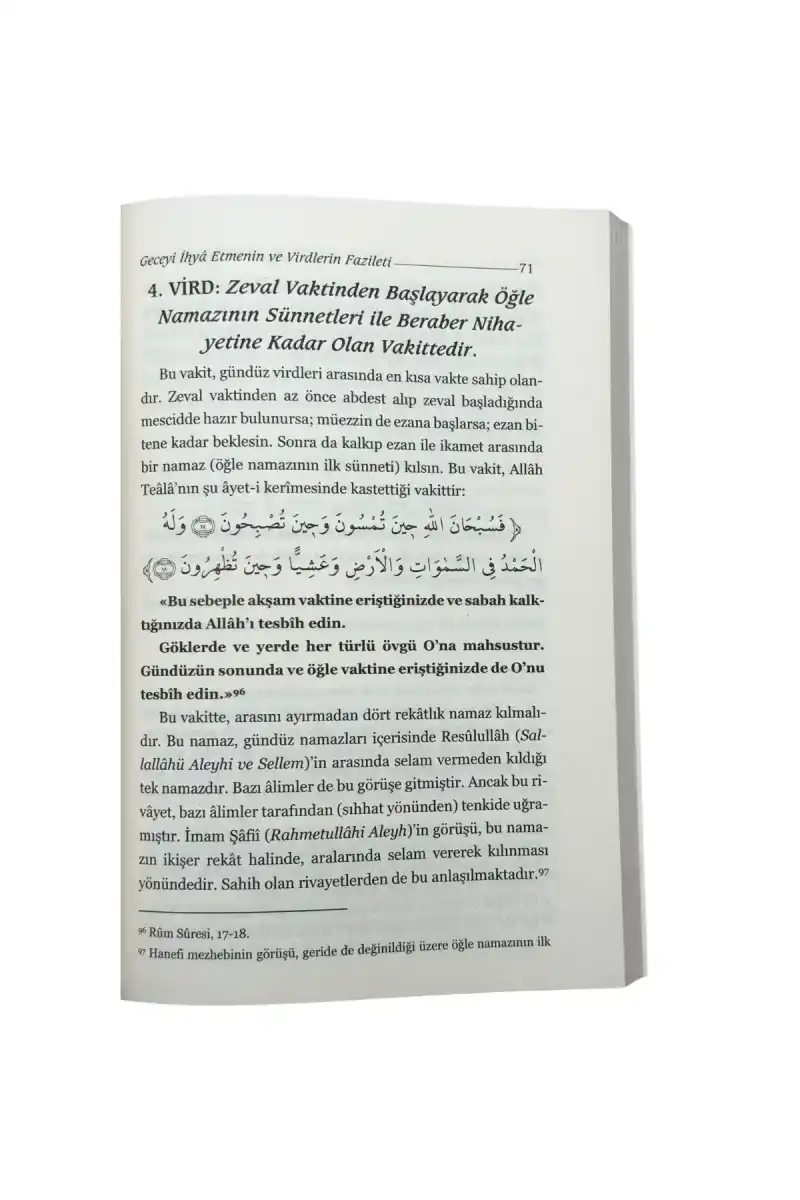 Geceyi İhyâ Etmenin ve Virdlerin Fazileti 71
4. VİRD: Zeval Vaktinden Başlayarak Öğle
Namazının Sünnetleri ile Beraber Niha-
yetine Kadar Olan Vakittedir.
Bu vakit, gündüz virdleri arasında en kısa vakte sahip olan-
dır. Zeval vaktinden az önce abdest alıp zeval başladığında
mescidde hazır bulunursa; müezzin de ezana başlarsa; ezan bi-
tene kadar beklesin. Sonra da kalkıp ezan ile ikamet arasında
bir namaz (öğle namazının ilk sünneti) kılsın. Bu vakit, Allâh
Teâlâ'nın şu âyet-i kerîmesinde kastettiği vakittir:
﴿فَسُبْحَانَ اللهِ حِينَ تُمْسُونَ وَحِينَ تُصْبِحُونَ ﴿١٧﴾ وَلَهُ
الْحَمْدُ فِي السَّمٰوَاتِ وَالْأَرْضِ وَعَشِيًّا وَحِينَ تُظْهِرُونَ ﴿١٨﴾﴾
«Bu sebeple akşam vaktine eriştiğinizde ve sabah kalk-
tığınızda Allâh'ı tesbîh edin.
Göklerde ve yerde her türlü övgü O'na mahsustur.
Gündüzün sonunda ve öğle vaktine eriştiğinizde de O'nu
tesbîh edin.»96
Bu vakitte, arasını ayırmadan dört rekâtlık namaz kılmalı-
dır. Bu namaz, gündüz namazları içerisinde Resûlullâh (Sal-
lallâhü Aleyhi ve Sellem)'in arasında selam vermeden kıldığı
tek namazdır. Bazı âlimler de bu görüşe gitmiştir. Ancak bu ri-
vâyet, bazı âlimler tarafından (sıhhat yönünden) tenkide uğra-
mıştır. İmam Şâfiî (Rahmetullâhi Aleyh)'in görüşü, bu nama-
zın ikişer rekât halinde, aralarında selam vererek kılınması
yönündedir. Sahih olan rivayetlerden de bu anlaşılmaktadır.97
96 Rûm Sûresi, 17-18.
97 Hanefi mezhebinin görüşü, geride de değinildiği üzere öğle namazının ilk